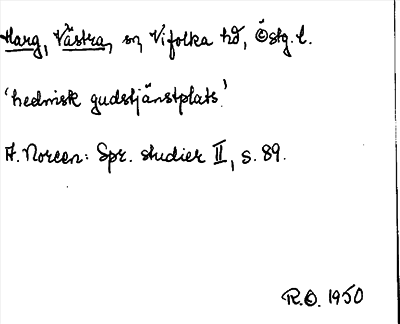 Harg, Västra, sn, Vifolka hd, Östg. l.
'hednisk gudstjänstplats.'
A. Noreen: Spr. studier II, s. 89.
R.O. 1950